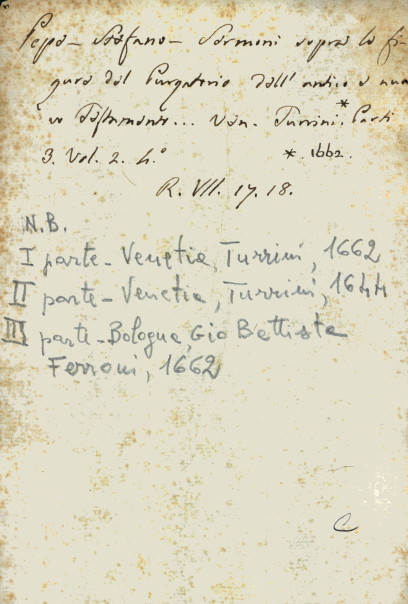 Pepe - Stefano - Sermoni sopra le fi-
gure del Purgatorio dell' antico e nuo-
vo Testamento... Ven. Turrini.* Parti
3. Vol. 2. 4.°
* . 1662.
R. VII. 17. 18.
N.B.
I parte - Venetia, Turrini, 1662
II parte - Venetia, Turrini, 1644
III parte - Bologna, Gio Battista
Ferroni, 1662
C